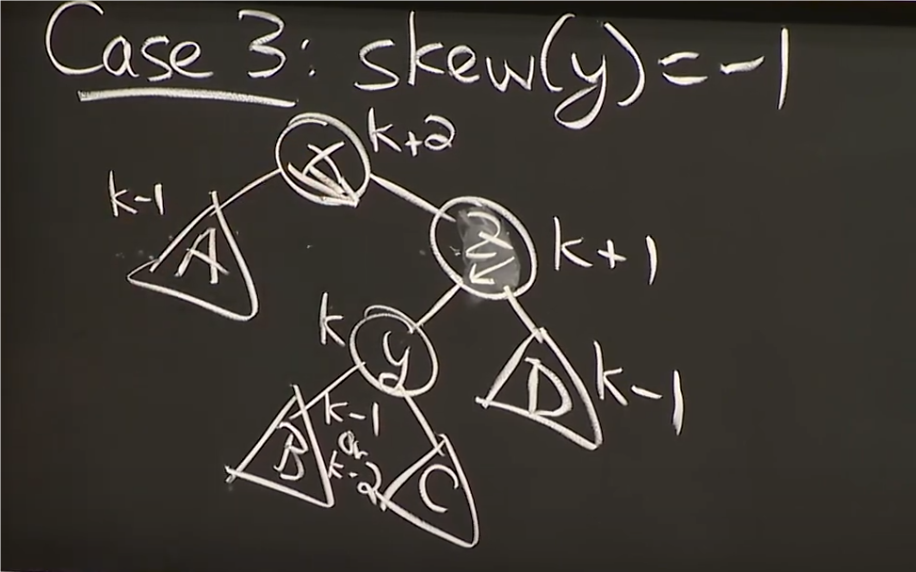 Case 3: skew(y)=-1
x k+2
k-1
A
z k+1
k
y
D k-1
k-1
or
k-2
B
C